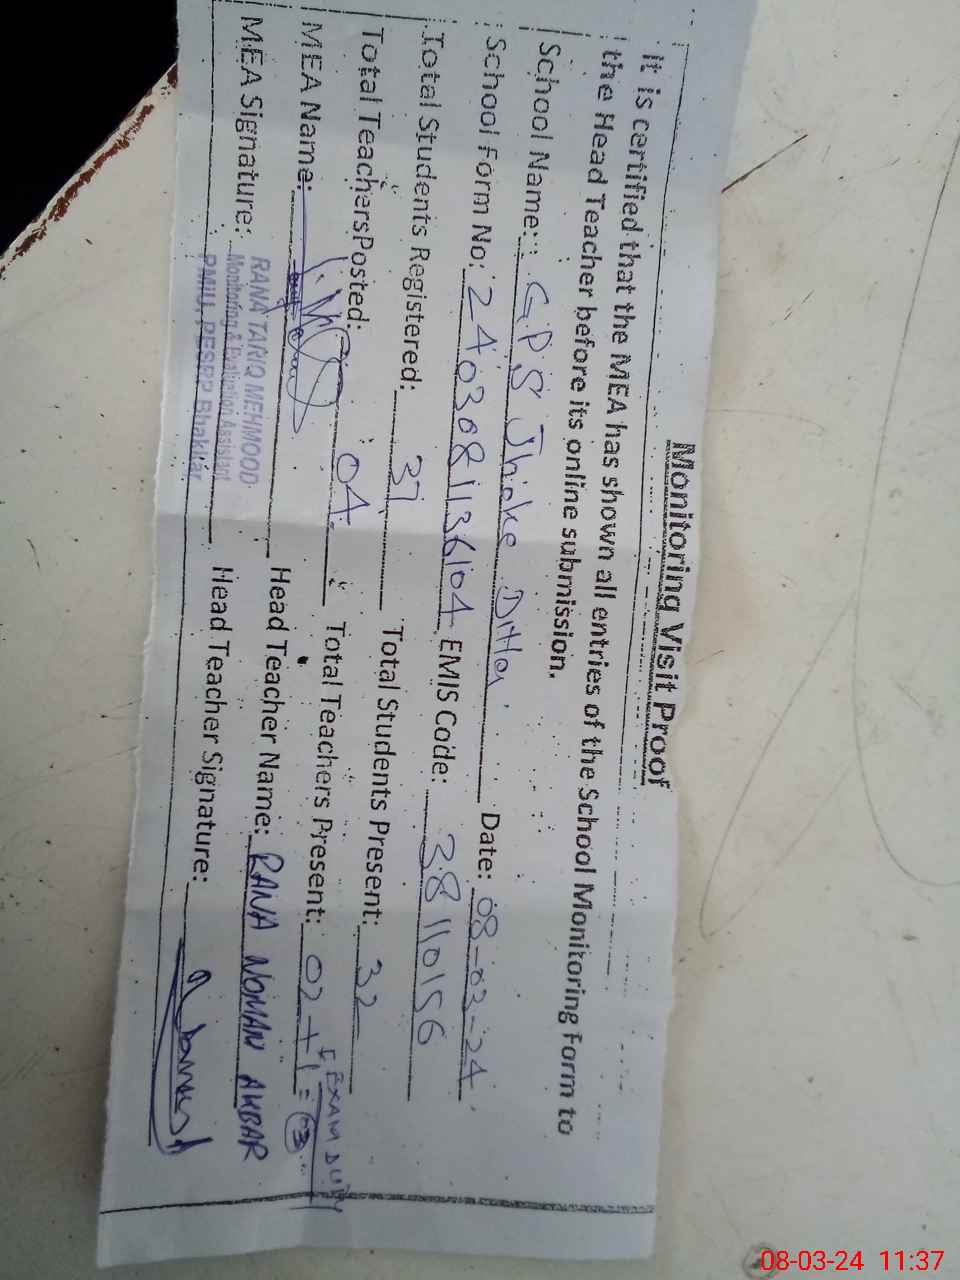 Monitoring Visit Proof
It is certified that the MEA has shown all entries of the School Monitoring Form to
the Head Teacher before its online submission.
School Name: GPS Jhoke Date: 08-03-24
School Form No: 24030811136104 EMIS Code: 38110156
Total Students Registered: 37 Total Students Present: 32
Total Teachers Posted: 04 Total Teachers Present: 02+1=03
EXAM DUTY
MEA Name: Head Teacher Name: RANA NOMAN AKBAR
MEA Signature: Head Teacher Signature:
RANA TARIQ MEHMOOD
Monitoring & Evaluation Assistant
PMIU, PESRP Bhakkar
08-03-24 11:37